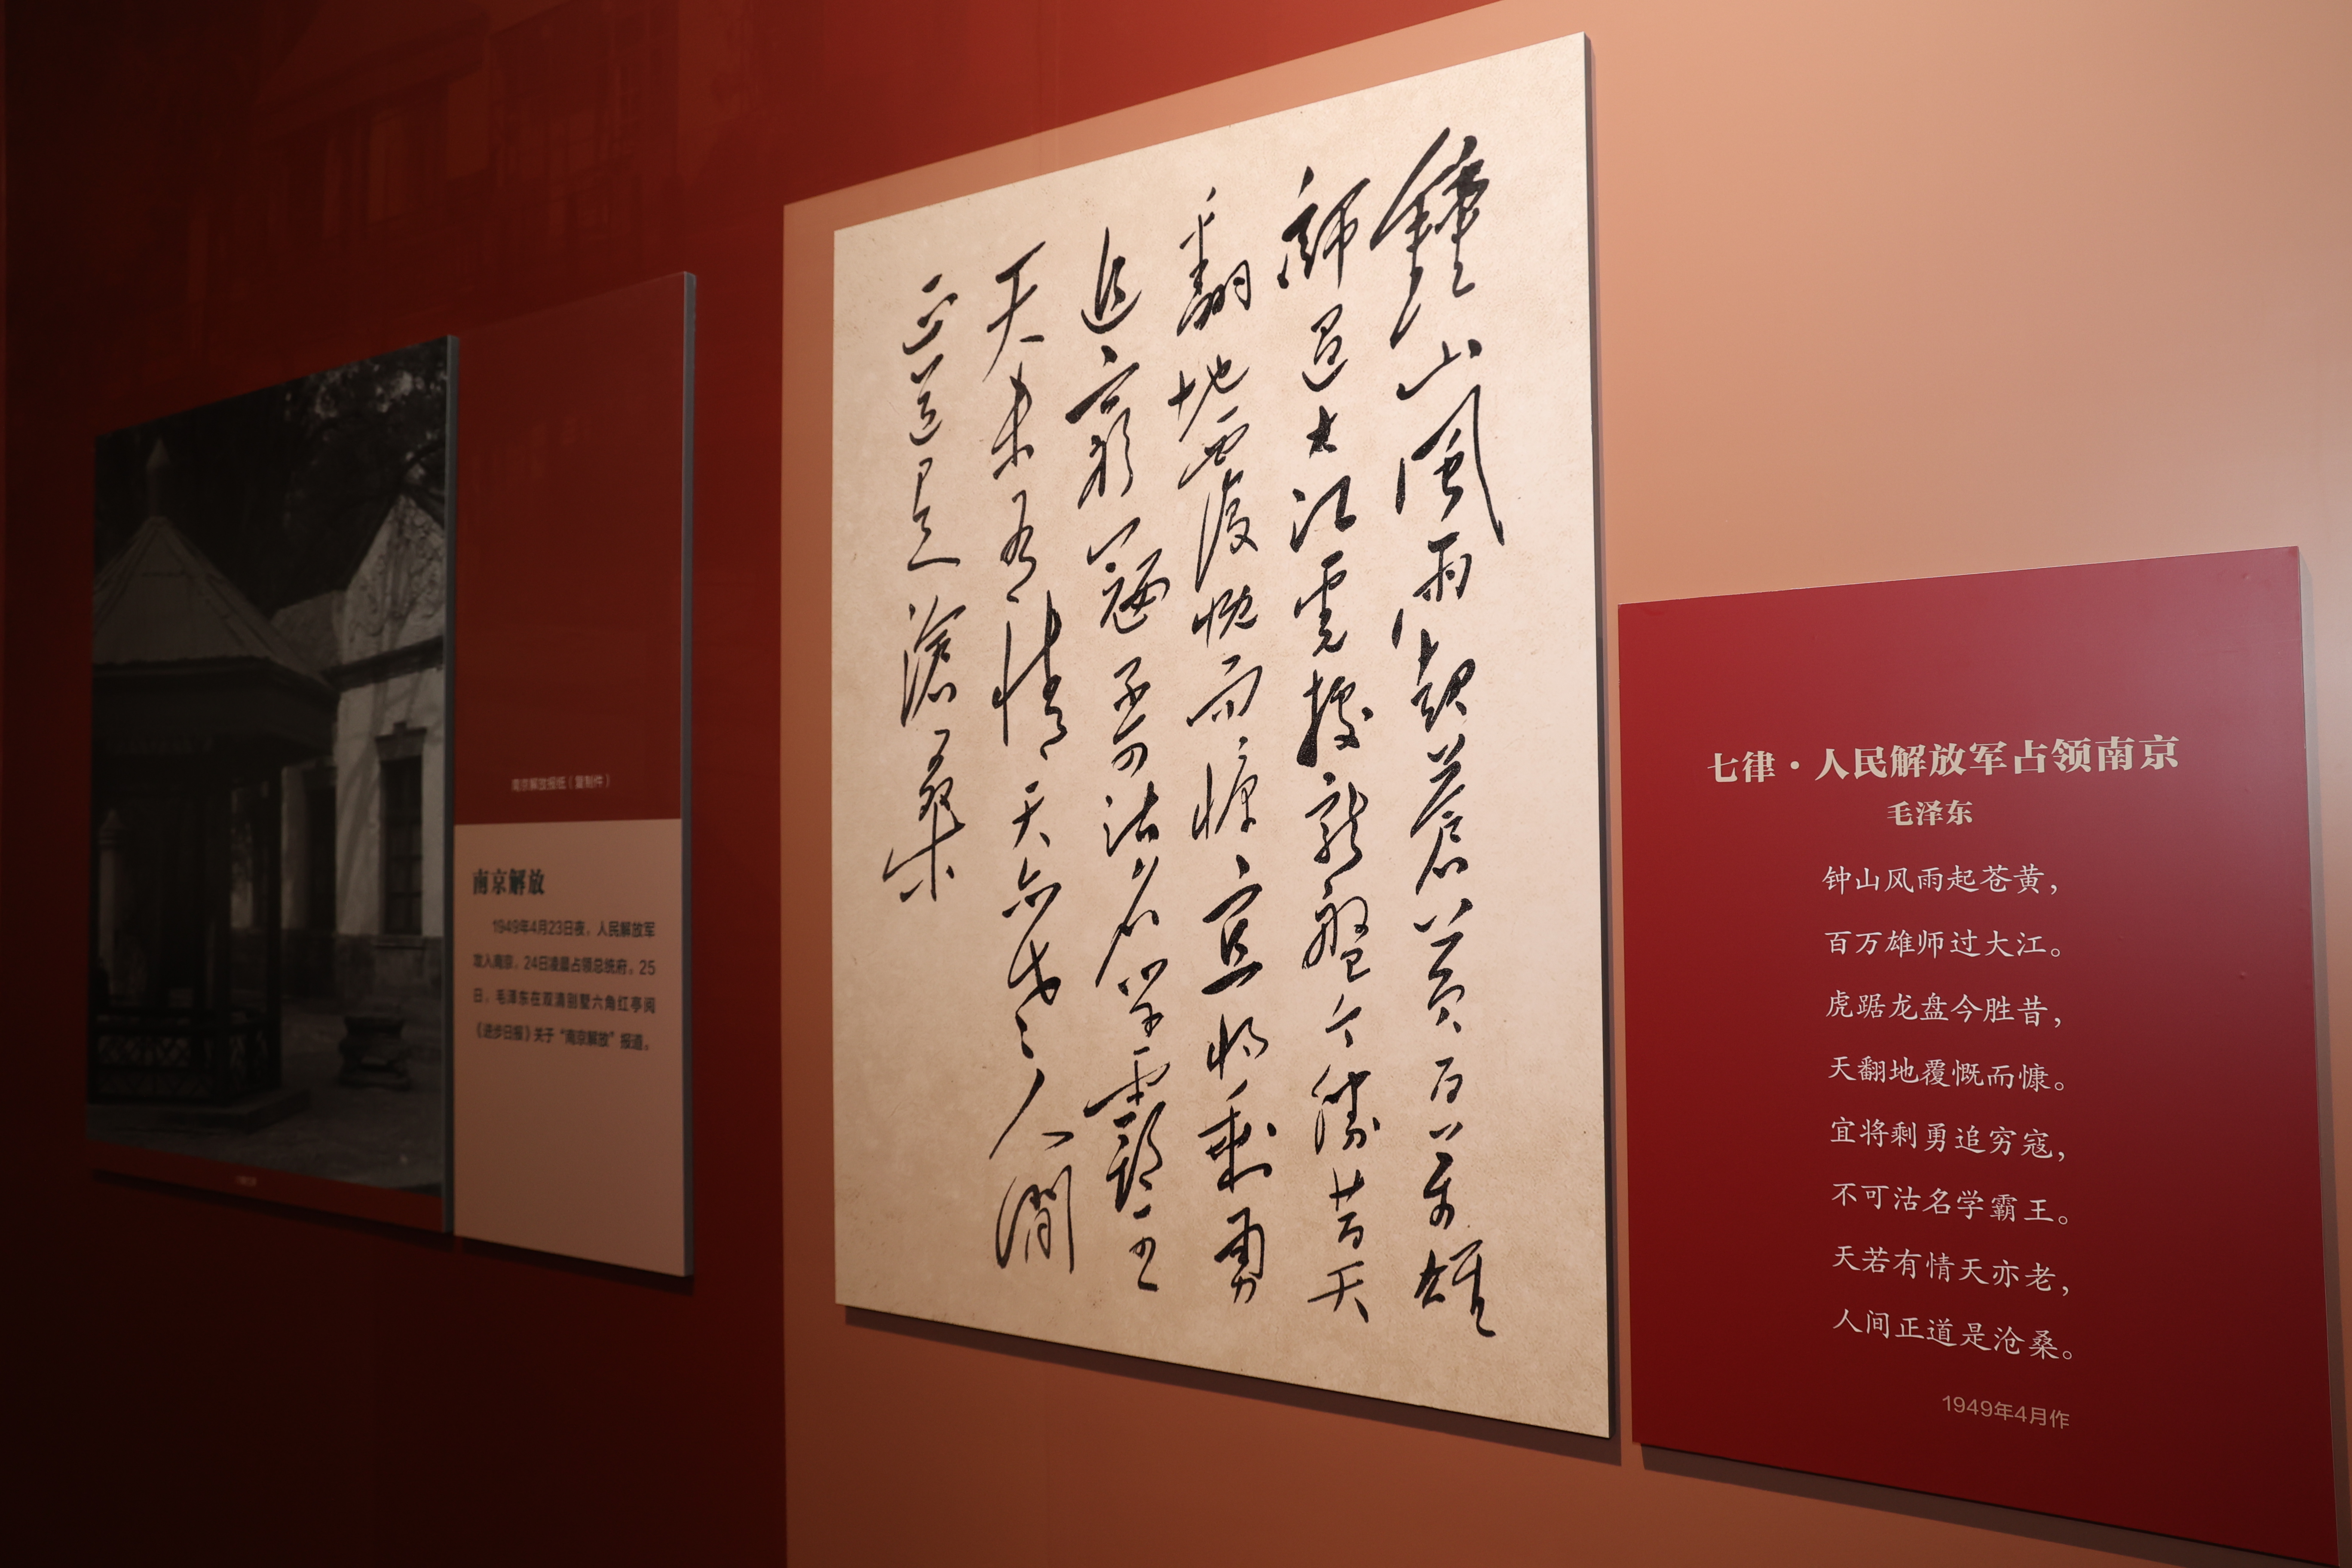 南京解放报纸（复制件）
南京解放
1949年4月23日夜，人民解放军
攻入南京，24日凌晨占领总统府。25
日，毛泽东在双清别墅六角红亭阅
《进步日报》关于“南京解放”报道。
鐘山風雨起蒼黃百萬雄
師過大江虎據龍盤今勝昔天
翻地覆慨而慷宜將剩勇
追窮寇不可沽名學霸王
天若有情天亦老人間
正道是滄桑
七律·人民解放军占领南京
毛泽东
钟山风雨起苍黄，
百万雄师过大江。
虎踞龙盘今胜昔，
天翻地覆慨而慷。
宜将剩勇追穷寇，
不可沽名学霸王。
天若有情天亦老，
人间正道是沧桑。
1949年4月作